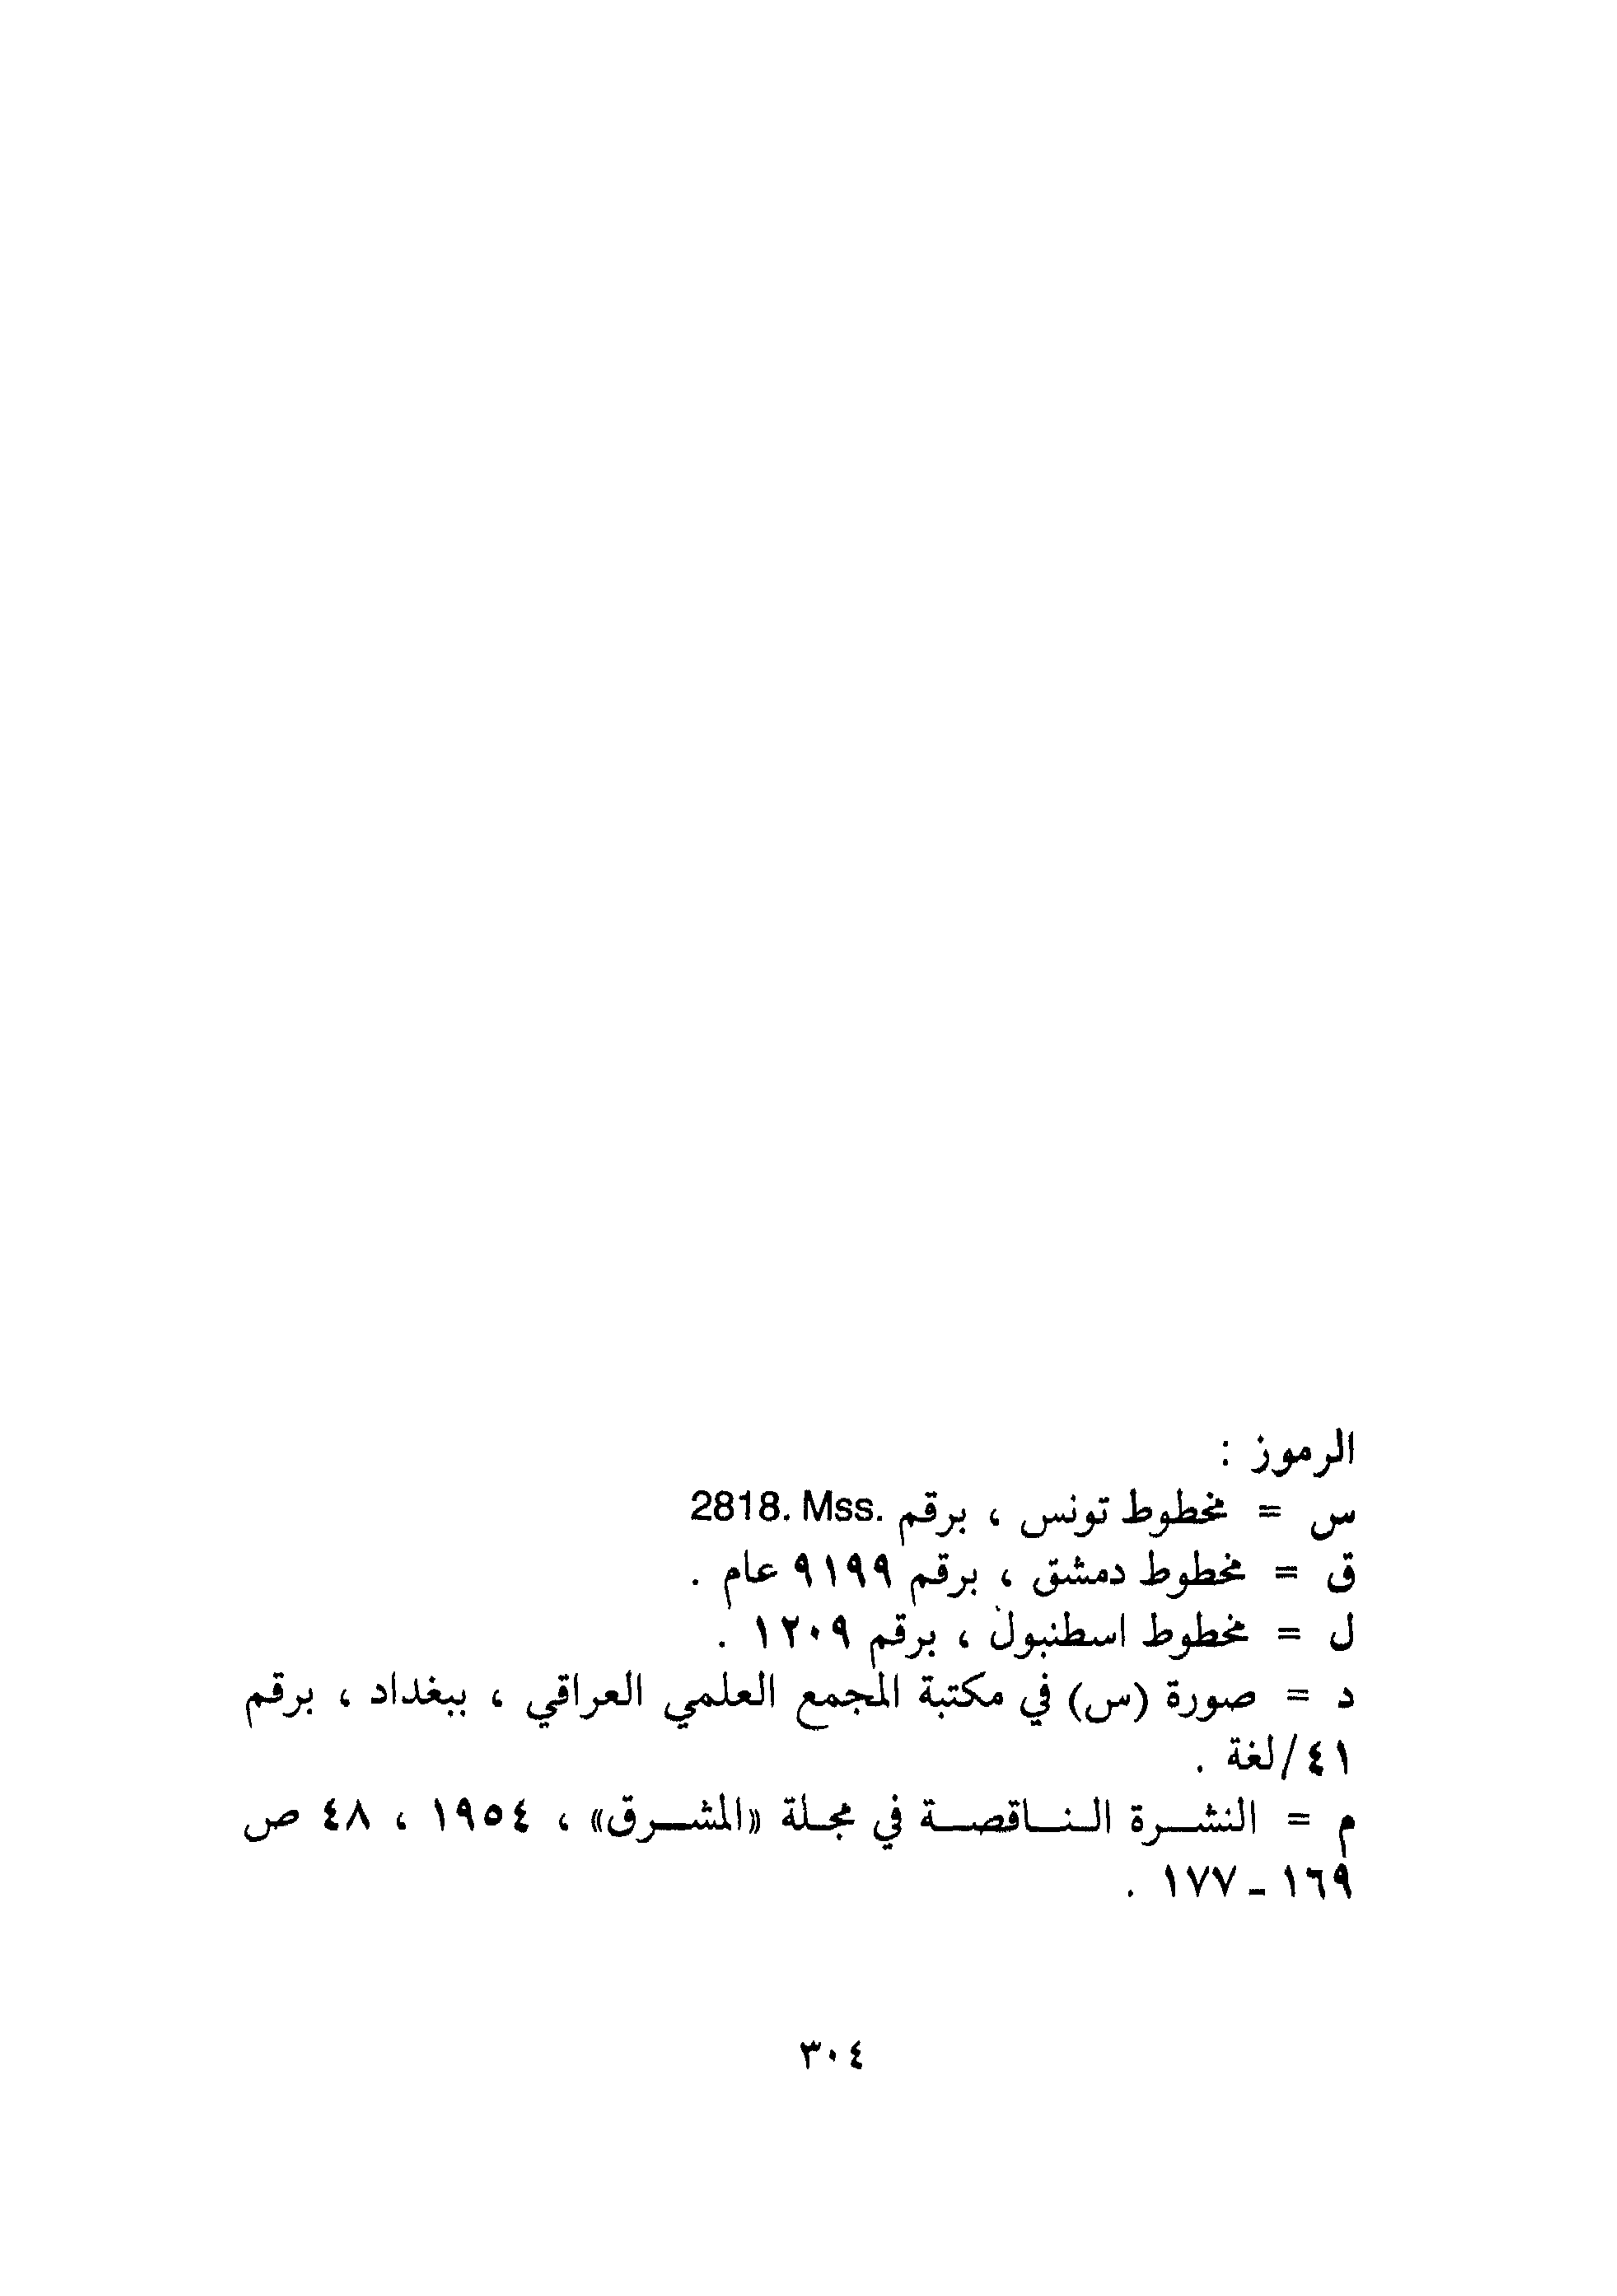 الرموز :
س = مخطوط تونس ، برقم 2818. Mss.
ق = مخطوط دمشق ، برقم ٩١٩٩ عام .
ل = مخطوط اسطنبول ، برقم ١٢٠٩ .
د = صورة (س) في مكتبة المجمع العلمي العراقي ، ببغداد ، برقم
٤١/لغة .
م = النشرة الناقصة في مجلة «المشرق» ، ١٩٥٤ ، ٤٨ ص
١٦٩ - ١٧٧ .
٣٠٤